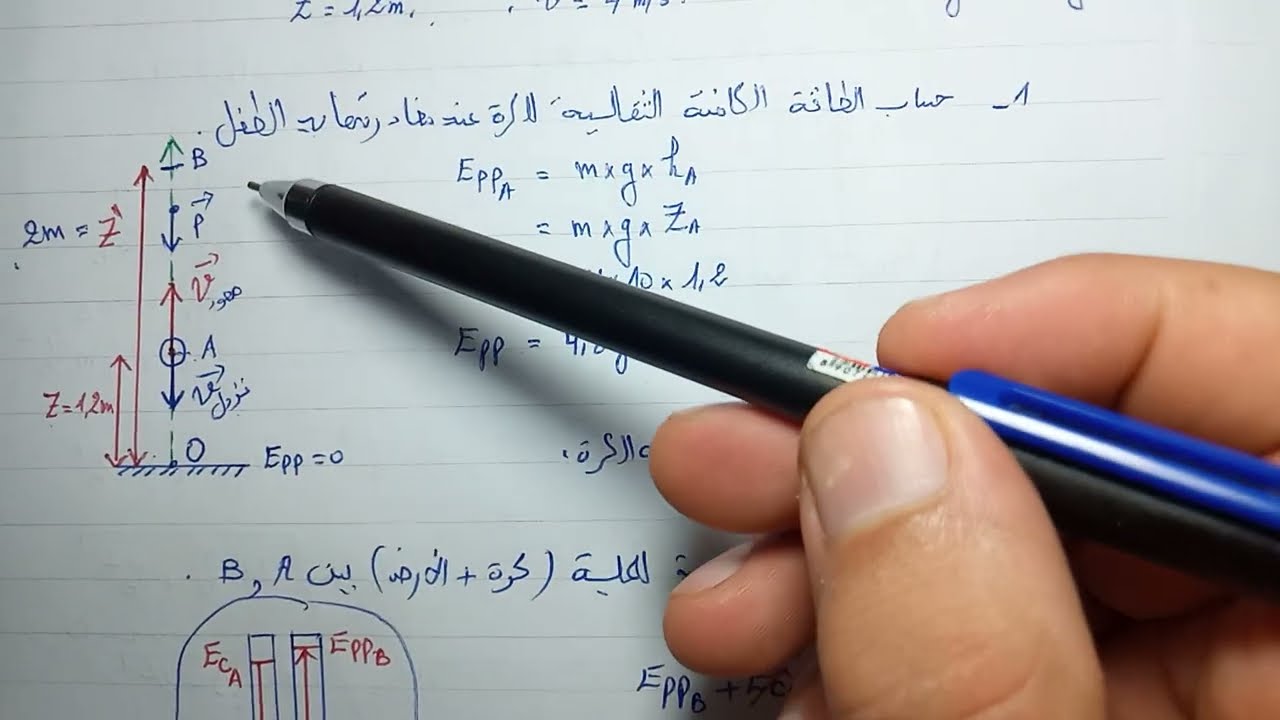 Z = 1,2m.
1- حساب الطاقة الكامنة الثقالية للكرة عند مغادرتها يد الطفل.
B
E_PPA = m×g×h_A
= m×g×Z_A
2m = Z
P
10 × 1,2
V صعود
A
E_PP =
V نزول
Z = 1,2m
O
E_PP = 0
الكرة.
للجملة (كرة + الأرض) بين A و B.
E_CA
E_PPB
E_PPB +